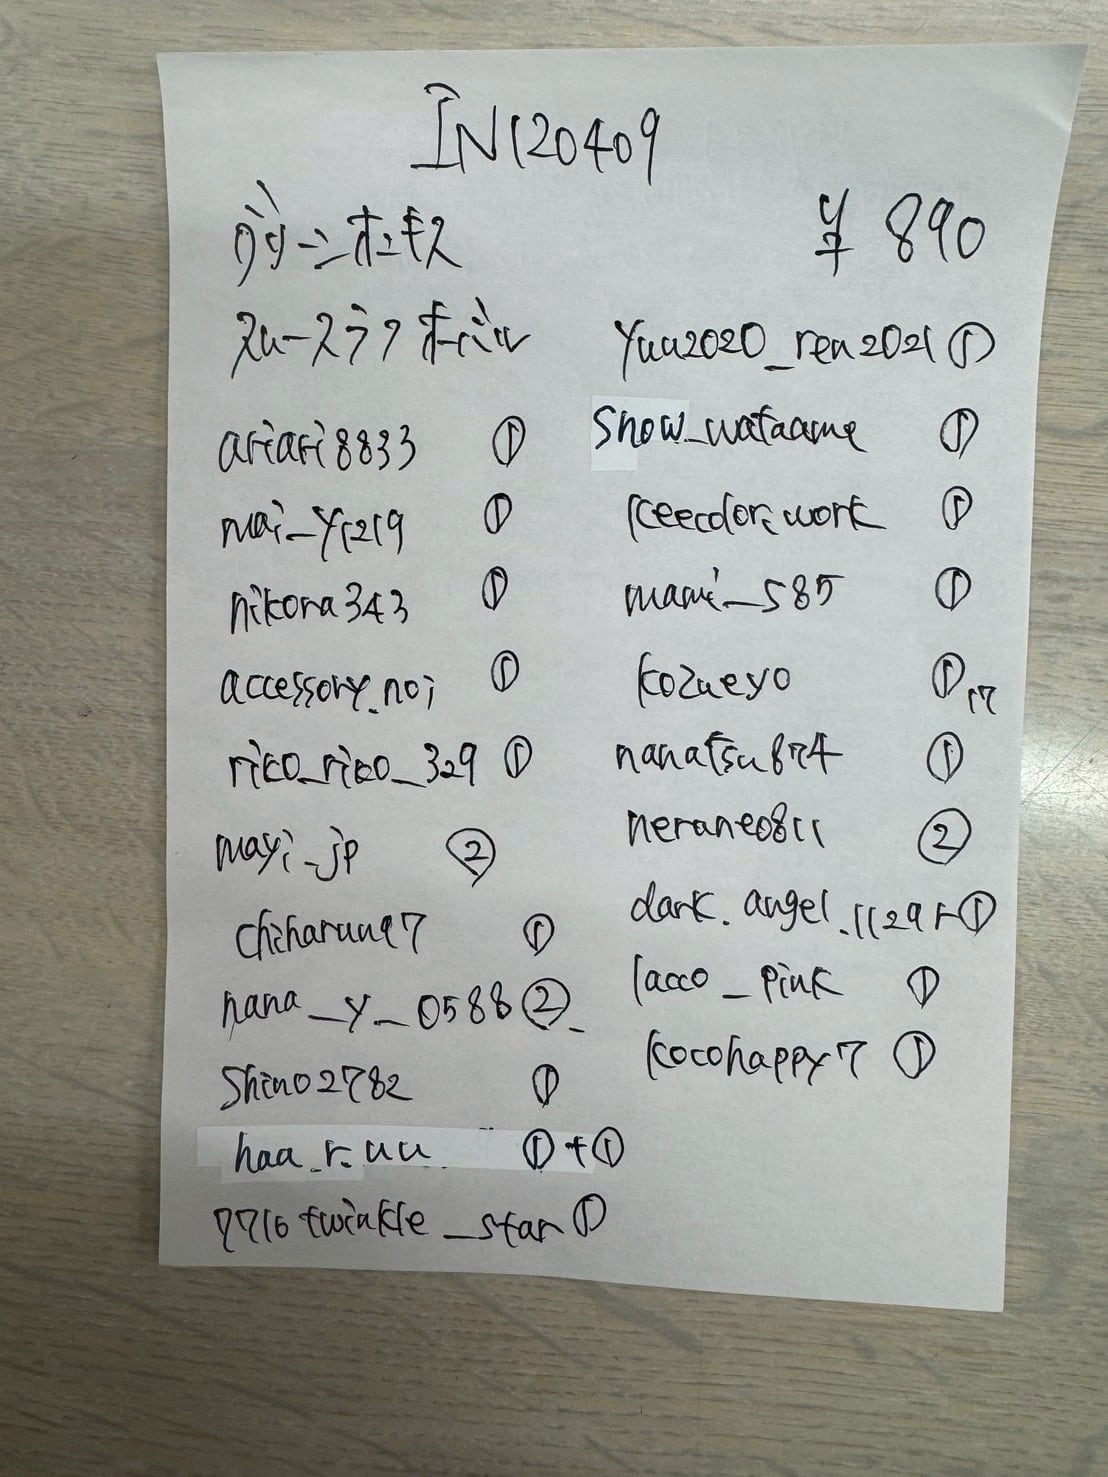 IN120409
グリーンオニキス
スムースラフオーバル
¥890
ariari8833 ①
mai_y1219 ①
nikora343 ①
accessory.noi ①
rico_rico_329 ①
mayi_jp ②
chiharun97 ①
nana_y_0588 ②
Shino2782 ①
haa_r.uu ①+①
7716twinkle_star ①
yuu2020_ren2021 ①
Snow_wataame ①
keecolor.work ①
mami_585 ①
kozueyo ① 17
nanatsu874 ①
nerane0811 ②
dark.angel.1129 ①
lacco_pink ①
kocohappy7 ①